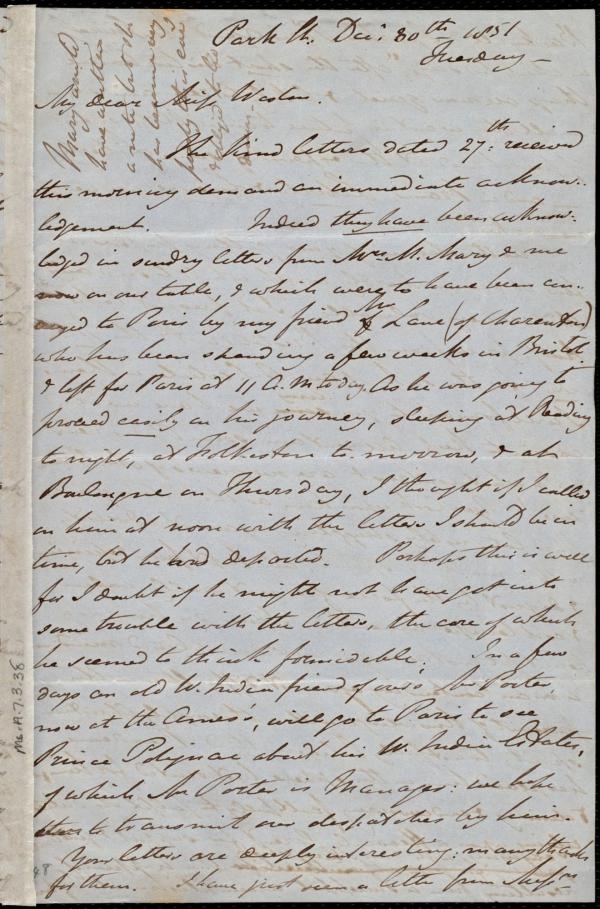 Park St. Dec: 30th 1851
Tuesday -
My dear Miss Weston.
The kind letters dated 27th: received
this morning demand an immediate acknow-
ledgement. Indeed they have been acknow-
ledged in sundry letters from Mrs. M. Mary & me
now on our table, & which were to have been con-
veyed to Paris by my friend Mr Lane (of Charenton)
who has been spending a few weeks in Bristol
& left for Paris at 11 A.M. today. As he was going to
proceed easily on his journey, sleeping at Reading
to night, at Folkeston to-morrow, & at
Boulogne on Thursday, I thought if I called
on him at noon with the letters I should be in
time, but he had departed. Perhaps this is well
for I doubt if he might not have got into
some trouble with the letters, the care of which
he seemed to think formidable. In a few
days an old W. India friend of ours Mr Porter,
now at the Ames's, will go to Paris to see
Prince Polignac about his W. India Estates,
of which Mr Porter is Manager: we hope
to transmit our despatches by him.
Your letters are deeply interesting: many thanks
for them. I have just seen a letter from
Mary
have written
a note but she
has become very
Ms.A.7.3.38
48